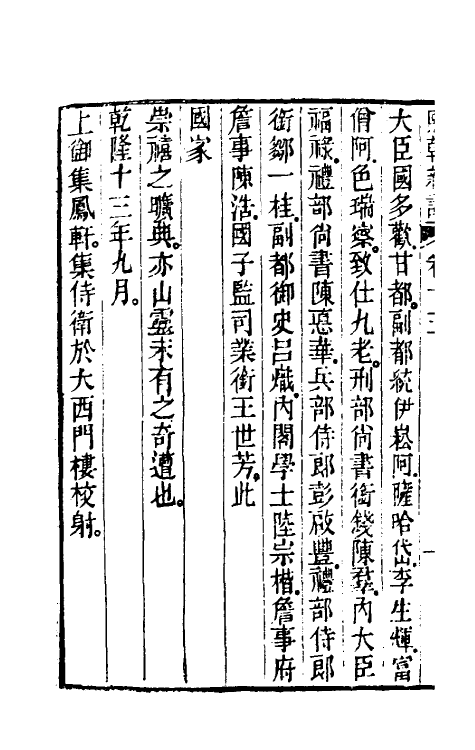 大臣國多歡甘都副都統伊崧阿薩哈岱李生輝富
僧阿色瑞察致仕九老刑部尚書銜錢陳羣內大臣
福祿禮部尚書陳悳華兵部侍郎彭啟豐禮部侍郎
銜鄒一桂副都御史呂熾內閣學士陸宗楷詹事府
詹事陳浩國子監司業銜王世芳此
國家
崇禧之曠典亦山靈未有之奇遭也
乾隆十三年九月
上御集鳳軒集侍衛於大西門樓校射